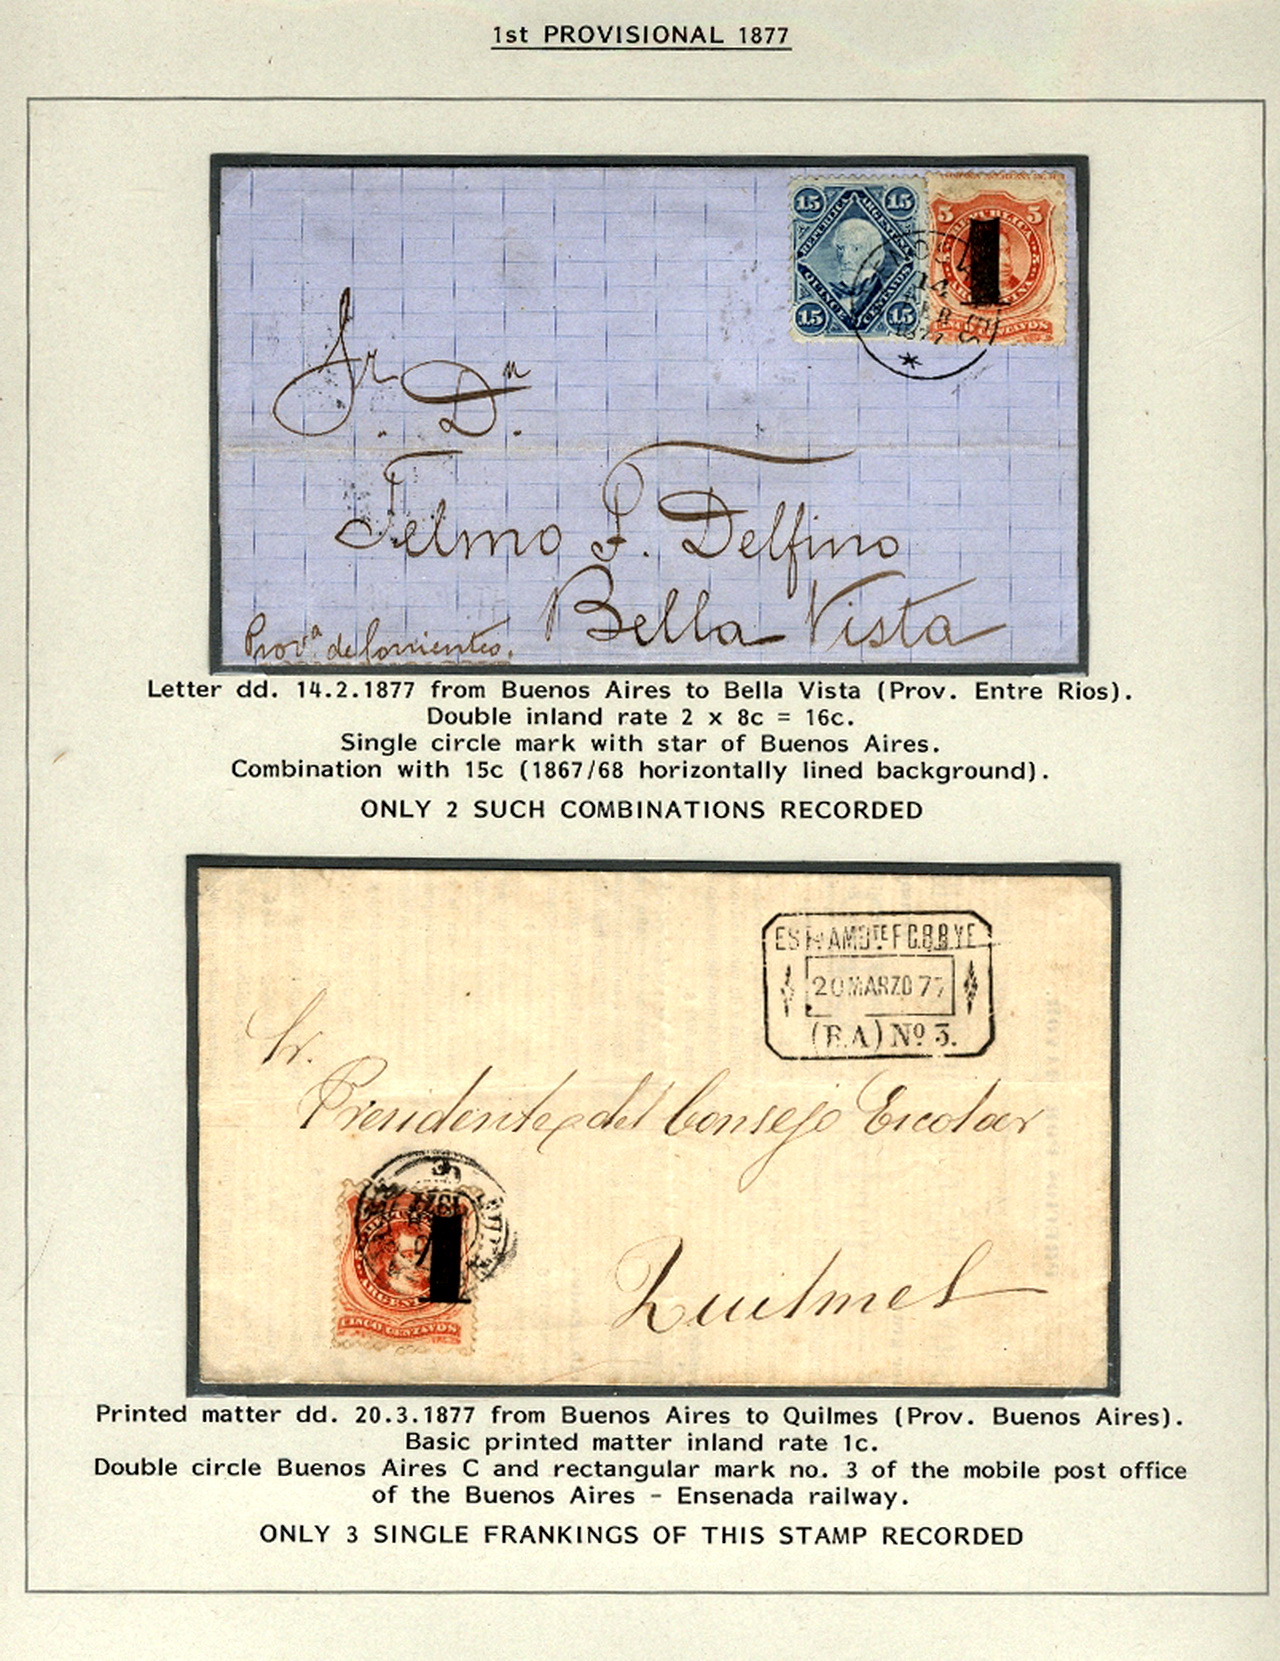 1st PROVISIONAL 1877
15 15
REPUBLICA ARGENTINA
QUINCE CENTAVOS
15 15
5 REPUBLICA 5
1
CINCO CENTAVOS
14
FEB
1877
Sr. Dn.
Telmo F. Delfino
Bella Vista
Prova. de Corrientes.
Letter dd. 14.2.1877 from Buenos Aires to Bella Vista (Prov. Entre Rios).
Double inland rate 2 x 8c = 16c.
Single circle mark with star of Buenos Aires.
Combination with 15c (1867/68 horizontally lined background).
ONLY 2 SUCH COMBINATIONS RECORDED
ESTa AMBTE F C.B.B.Y E
20 MARZO 77
(B.A) No 3.
Sr.
Presidente del Consejo Escolar
Quilmes
1
ARGENTINA
CINCO CENTAVOS
Printed matter dd. 20.3.1877 from Buenos Aires to Quilmes (Prov. Buenos Aires).
Basic printed matter inland rate 1c.
Double circle Buenos Aires C and rectangular mark no. 3 of the mobile post office
of the Buenos Aires - Ensenada railway.
ONLY 3 SINGLE FRANKINGS OF THIS STAMP RECORDED